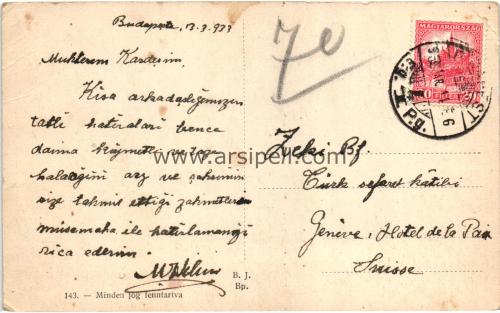 Budapeşte 13.3.933
Muhterem Kardeşim.
Kısa arkadaşlığımızın
tatlı hatıraları bence
daima kıymetli ve taze
kalacağını arz ve şahsımın
size tahmil ettiği zahmetleri
müsamaha ile hatırlamanızı
rica ederim.
B. J.
Bp.
143. — Minden jog fenntartva
70
MAGYARORSZÁG
10 FILLÉR
Zeki Bf.
Türk sefaret kâtibi
Genève. Hotel de la Paix
Suisse
www.arsipell.com